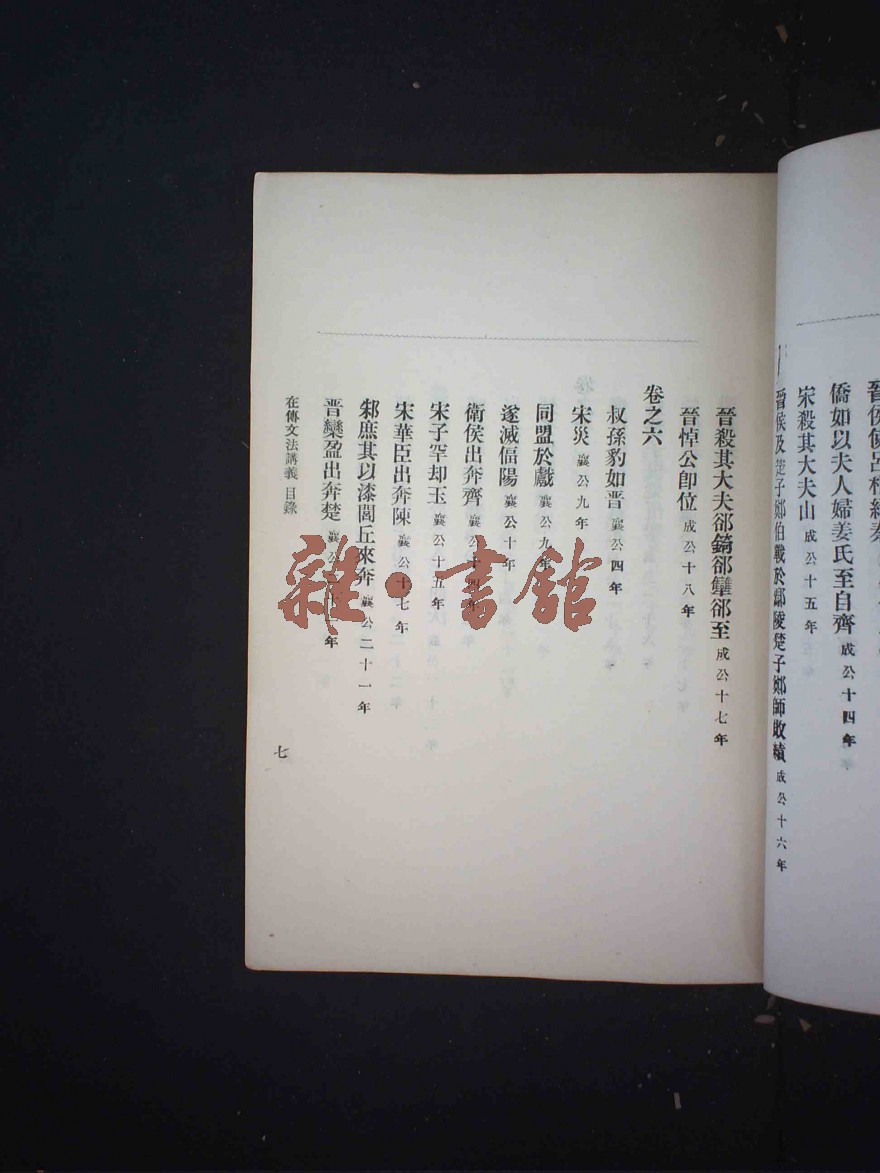 僑如以夫人婦姜氏至自齊 成公十四年
宋殺其大夫山 成公十五年
晉侯及楚子鄭伯戰於鄢陵楚子鄭師敗績 成公十六年
晉殺其大夫郤錡郤犫郤至 成公十七年
晉悼公卽位 成公十八年
卷之六
叔孫豹如晋 襄公四年
宋災 襄公九年
同盟於戲 襄公九年
遂滅偪陽 襄公十年
衛侯出奔齊 襄公十四年
宋子罕却玉 襄公十五年
宋華臣出奔陳 襄公十七年
邾庶其以漆閭丘來奔 襄公二十一年
晋欒盈出奔楚 襄公二十 年
左傳文法講義 目錄
七
雜·書館